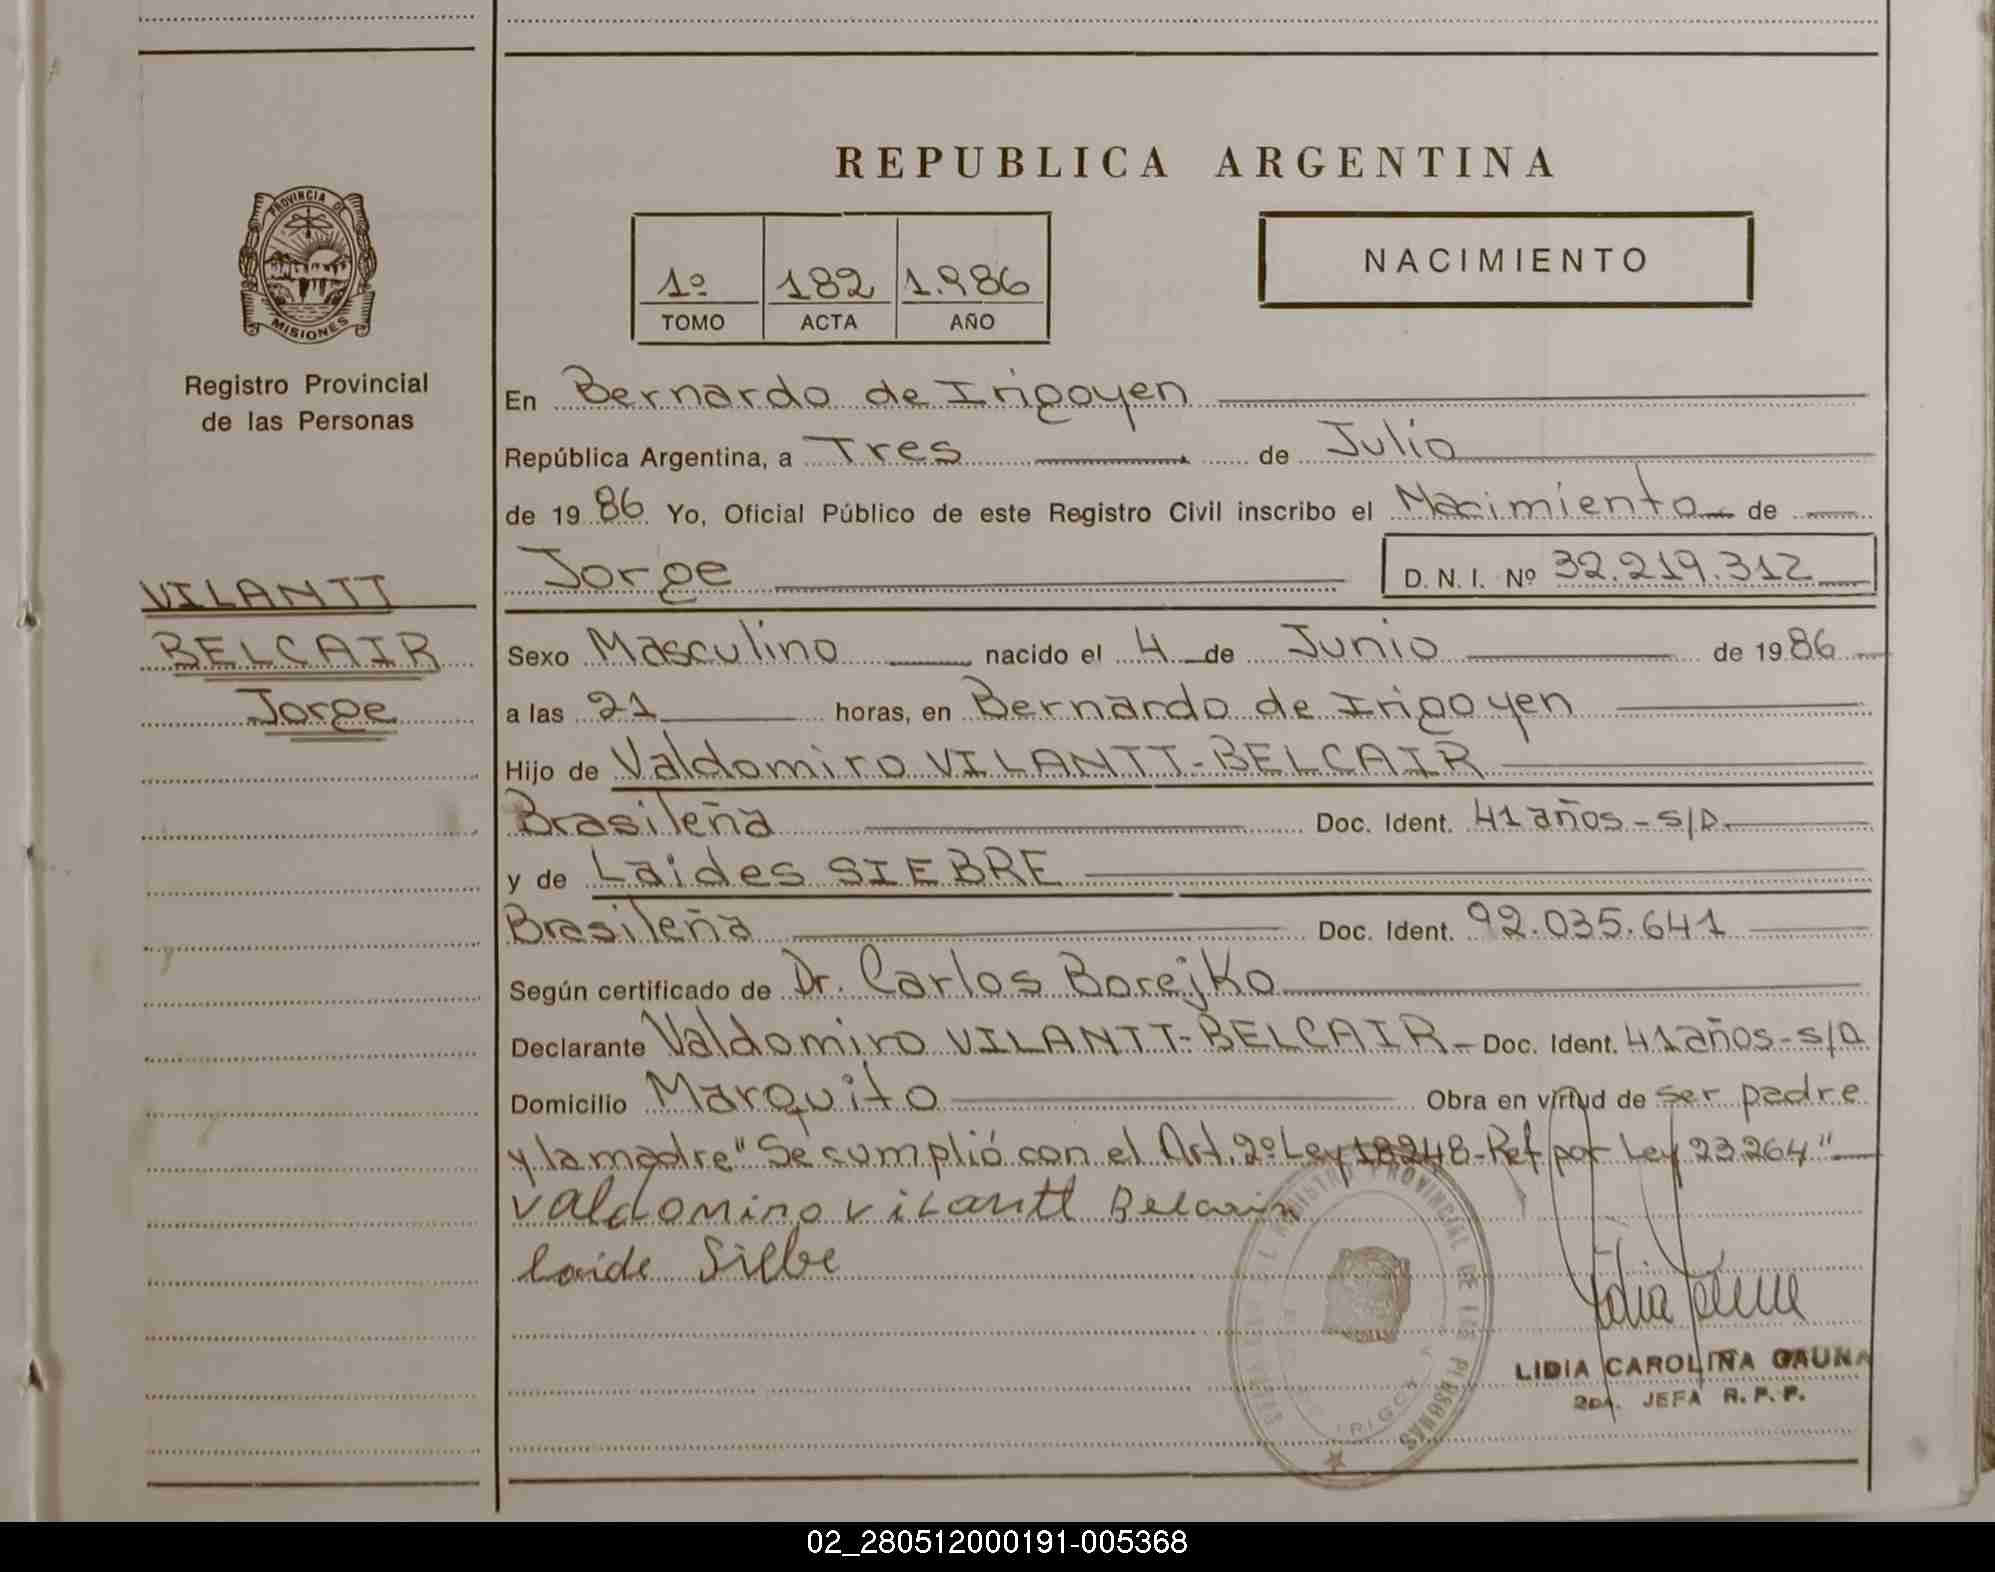 REPUBLICA ARGENTINA
PROVINCIA DE
MISIONES
Registro Provincial
de las Personas
1º 182 1.986
TOMO ACTA AÑO
NACIMIENTO
En Bernardo de Irigoyen
República Argentina, a Tres de Julio
de 1986 Yo, Oficial Público de este Registro Civil inscribo el Nacimiento de
Jorge D.N.I. Nº 32.219.312
VILANTT
BELCAIR
Jorge
Sexo Masculino nacido el 4 de Junio de 1986
a las 21 horas, en Bernardo de Irigoyen
Hijo de Valdomiro VILANTT-BELCAIR
Brasileña Doc. Ident. 41 años - s/D
y de Laides SIEBRE
Brasileña Doc. Ident. 92.035.641
Según certificado de Dr. Carlos Borejko
Declarante Valdomiro VILANTT-BELCAIR Doc. Ident. 41 años - s/D
Domicilio Marquito Obra en virtud de ser padre
y la madre "Se cumplió con el Art. 2º Ley 18248-Ref por Ley 23.264"
Valdomiro vilantt Belcair
Laide Silbe
REGISTRO PROVINCIAL DE LAS PERSONAS
LIDIA CAROLINA GAUNA
2DA. JEFA R.P.P.
02_280512000191-005368